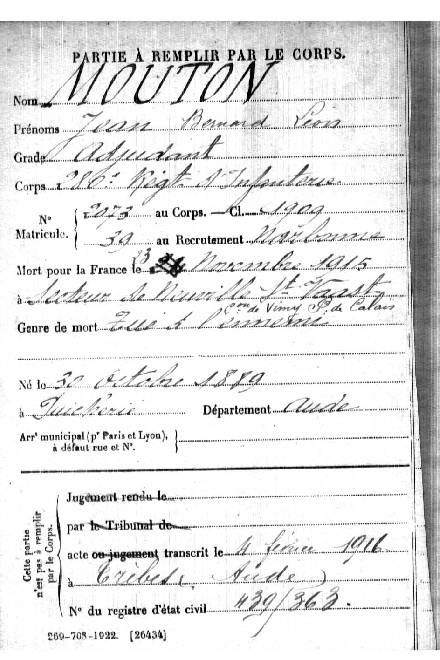 PARTIE À REMPLIR PAR LE CORPS.
Nom MOUTON
Prénoms Jean Bernard Léon
Grade Adjudant
Corps 280e Régt d'Infanterie
N° Matricule. { 2073 au Corps. — Cl. 1909
39 au Recrutement Narbonne
Mort pour la France le 3 Novembre 1915
à Secteur de Neuville St. Vaast
on de Vimy P. de Calais
Genre de mort Tué à l'ennemi
Né le 30 Octobre 1889
à Département Aude
Arrt municipal (pr Paris et Lyon), à défaut rue et N°.
Cette partie n'est pas à remplir par le Corps.
Jugement rendu le
par le Tribunal de
acte ou jugement transcrit le 4 février 1916
à Trèbes (Aude)
N° du registre d'état civil 439/363.
269-708-1922. [26434]